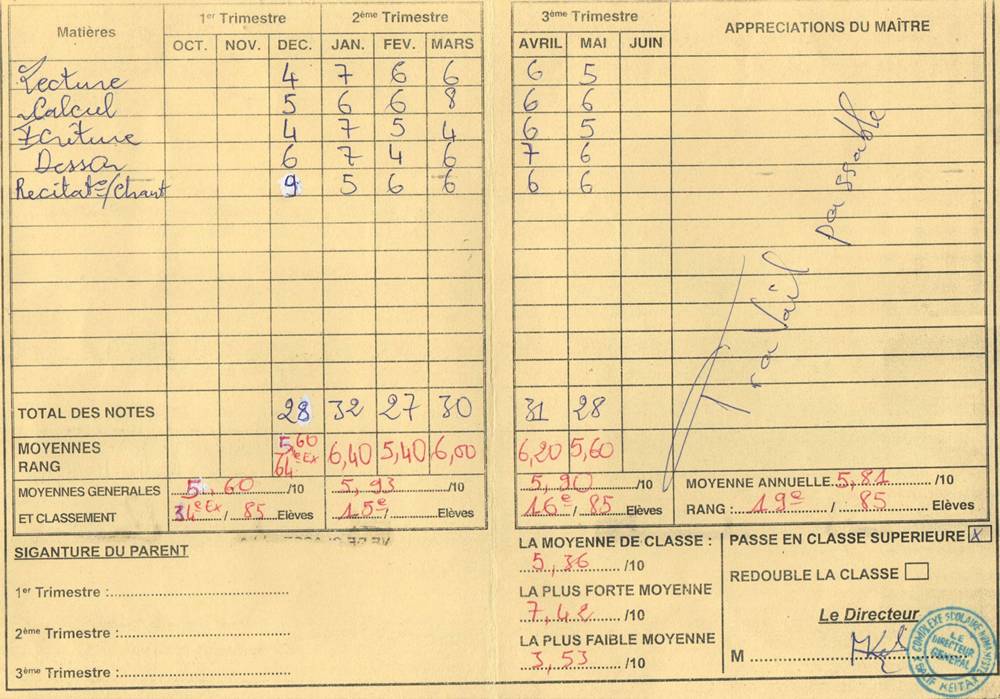 Matières 1er Trimestre 2ème Trimestre 3ème Trimestre APPRECIATIONS DU MAÎTRE
OCT. NOV. DEC. JAN. FEV. MARS AVRIL MAI JUIN
Lecture 4 7 6 6 6 5
Calcul 5 6 6 8 6 6
Ecriture 4 7 5 4 6 5
Dessin 6 7 4 6 7 6
Recitatº/Chant 9 5 6 6 6 6
Travail passable
TOTAL DES NOTES 28 32 27 30 31 28
MOYENNES 5,60 6,40 5,40 6,00 6,20 5,60
RANG
MOYENNES GENERALES 5,60 /10 5,93 /10 5,90 /10 MOYENNE ANNUELLE 5,81 /10
ET CLASSEMENT 34e Ex / 85 Elèves 15e / Elèves 16e / 85 Elèves RANG : 19e / 85 Elèves
SIGANTURE DU PARENT
1er Trimestre :
2ème Trimestre :
3ème Trimestre :
LA MOYENNE DE CLASSE :
5,36 /10
LA PLUS FORTE MOYENNE
7,42 /10
LA PLUS FAIBLE MOYENNE
3,53 /10
PASSE EN CLASSE SUPERIEURE X
REDOUBLE LA CLASSE
Le Directeur
M
COMPLEXE SCOLAIRE
LE DIRECTEUR GENERAL
SALIF KEITA